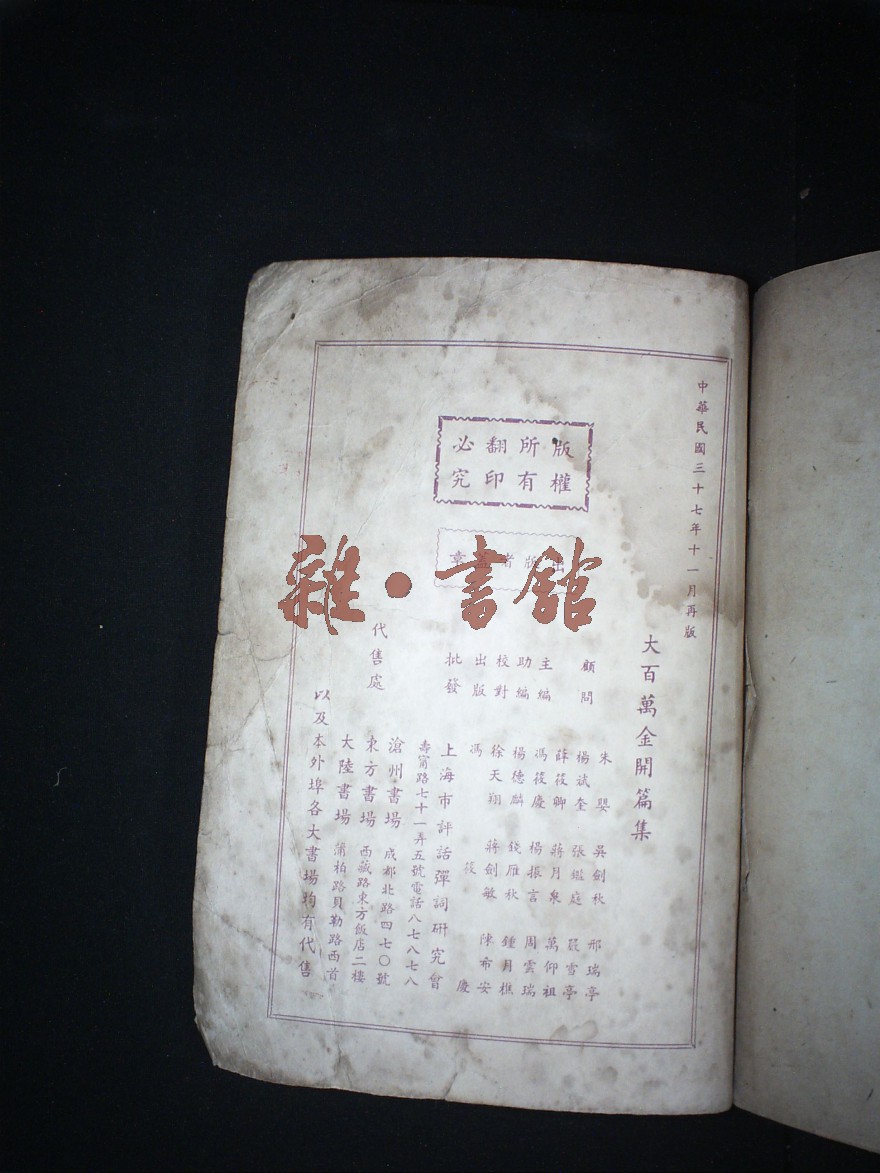 中華民國三十七年十一月再版
大百萬金開篇集
版權所有翻印必究
出版者蓋章
雜·書館
顧問 朱嬰 吳劍秋 邢瑞亭
楊斌奎 張鑑庭 嚴雪亭
主編 薛筱卿 蔣月泉 萬仰祖
助編 馮筱慶 楊振言 周雲瑞
校對 楊德麟 錢雁秋 鍾月樵
徐天翔 蔣劍敏 陳希安
出版 馮筱慶
批發 上海市評話彈詞研究會
壽甯路七十一弄五號電話八七八七八
代售處 滄州書場 成都北路四七〇號
東方書場 西藏路東方飯店二樓
大陸書場 蒲柏路貝勒路西首
以及本外埠各大書場均有代售